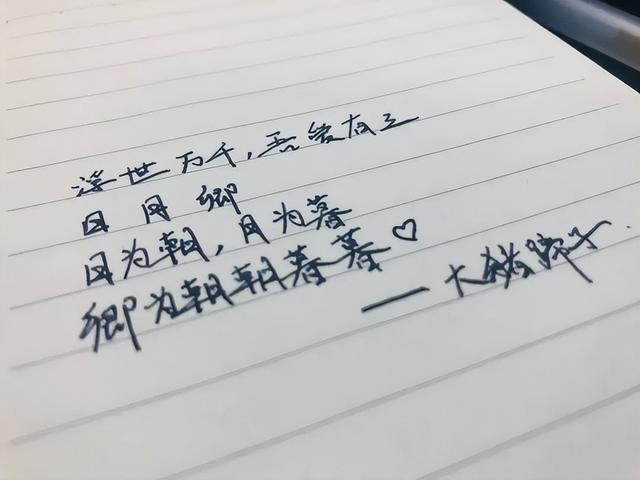 浮世万千,吾爱有三
日月卿
日为朝,月为暮
卿为朝朝暮暮♡
——大猪蹄子